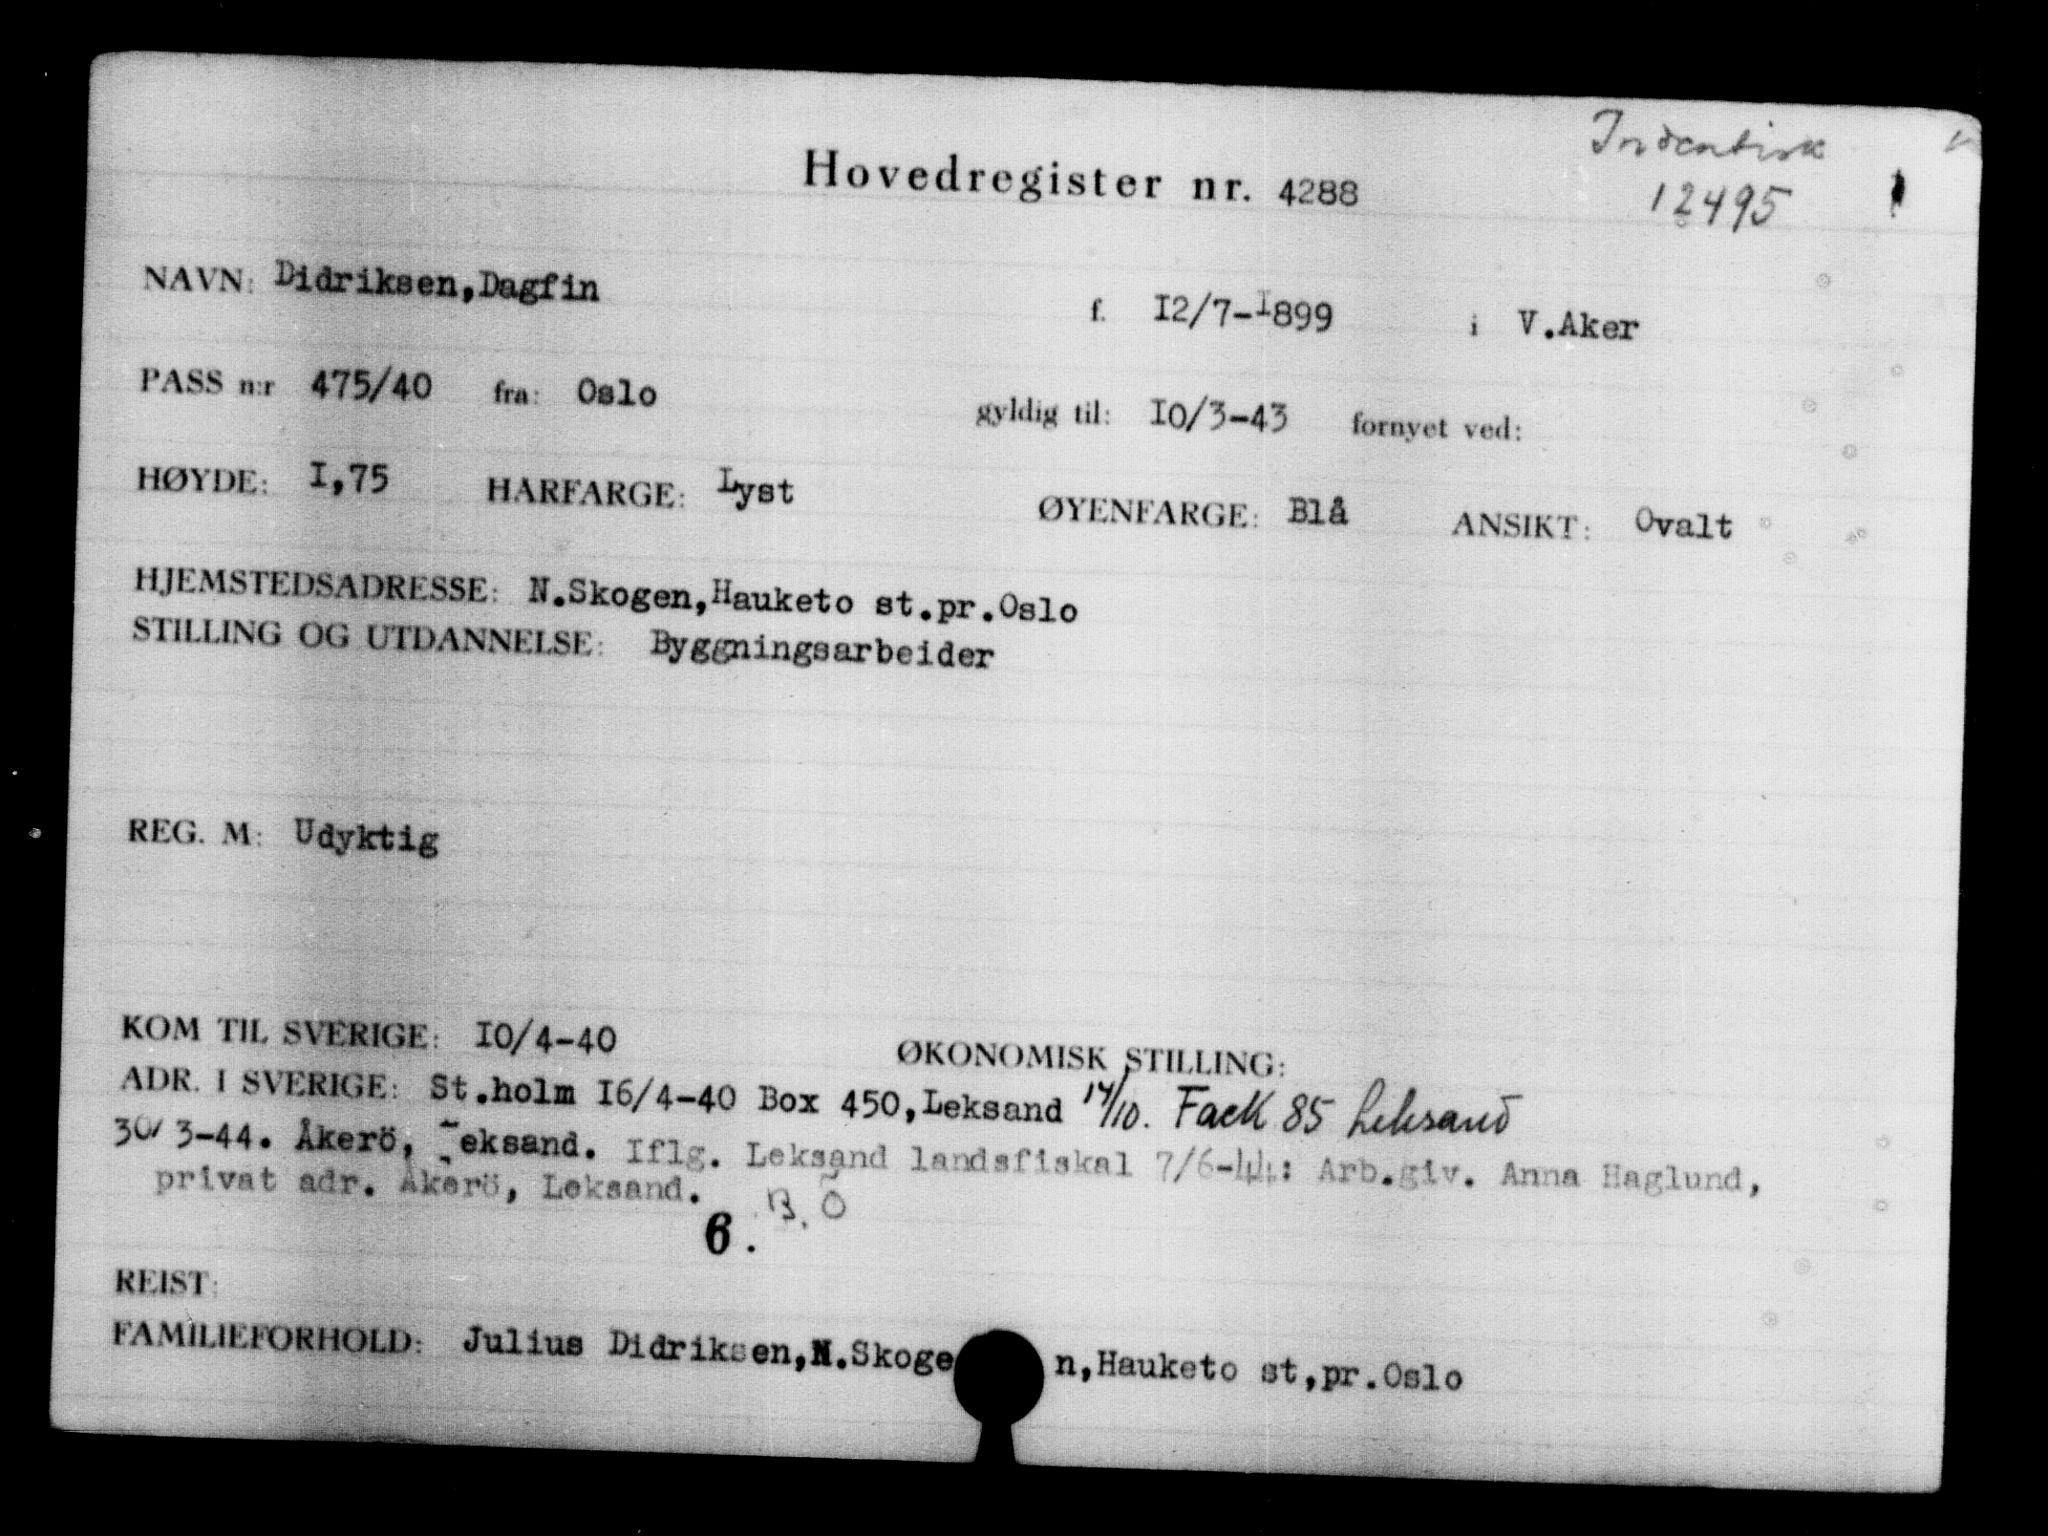 Indentisk
Hovedregister nr. 4288
12495
NAVN: Didriksen,Dagfin f. I2/7-I899 i V.Aker
PASS n:r 475/40 fra: Oslo gyldig til: IO/3-43 fornyet ved:
HØYDE: I,75 HARFARGE: Lyst ØYENFARGE: Blå ANSIKT: Ovalt
HJEMSTEDSADRESSE: N.Skogen,Hauketo st.pr.Oslo
STILLING OG UTDANNELSE: Byggningsarbeider
REG. M: Udyktig
KOM TIL SVERIGE: IO/4-40 ØKONOMISK STILLING:
ADR. I SVERIGE: St.holm I6/4-40 Box 450,Leksand 14/10. Fack 85 Leksand
30/3-44. Åkerö, Leksand. Iflg. Leksand landsfiskal 7/6-44: Arb.giv. Anna Haglund,
privat adr. Åkerö, Leksand.
6. B.Ö
REIST:
FAMILIEFORHOLD: Julius Didriksen,N.Skoge n,Hauketo st,pr.Oslo